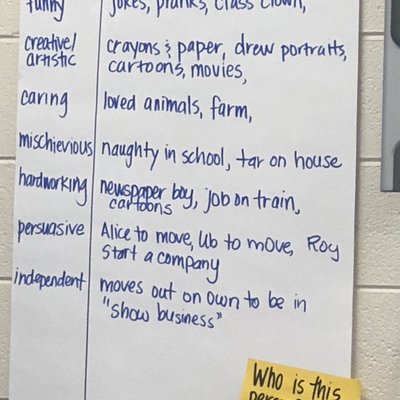 funny jokes, pranks, class clown,
creative/ crayons & paper, drew portraits,
artistic cartoons, movies,
caring loved animals, farm,
mischievious naughty in school, tar on house
hardworking newspaper boy, job on train,
cartoons
persuasive Alice to move, Ub to move, Roy
start a company
independent moves out on own to be in
"show business"
Who is this